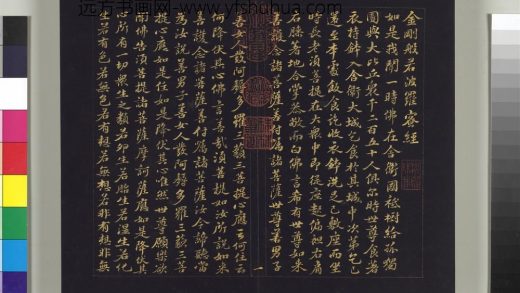 远方书画网-www.yfshuhua.com
金剛般若波羅蜜經
如是我聞一時佛在舍衛國祇樹給孤獨
園與大比丘衆千二百五十人俱尒時世尊食時著
衣持鉢入舍衛大城乞食於其城中次第乞已
還至本處飯食訖收衣鉢洗足已敷座而坐
時長老須菩提在大衆中即從座起偏袒右肩
右膝著地合掌恭敬而白佛言希有世尊如来
善護念諸菩薩善付屬諸菩薩世尊善男子
一
善女人發阿耨多羅三藐三菩提心應云何住云
何降伏其心佛言善哉善哉須菩提如汝所說如来
善護念諸菩薩善付屬諸菩薩汝今諦聽當
為汝說善男子善女人發阿耨多羅三藐三菩
提心應如是住如是降伏其心唯然世尊願樂欲
聞佛告須菩提諸菩薩摩訶薩應如是降伏其
心所有一切衆生之類若卵生若胎生若濕生若化
生若有色若無色若有想若無想若非有想非無